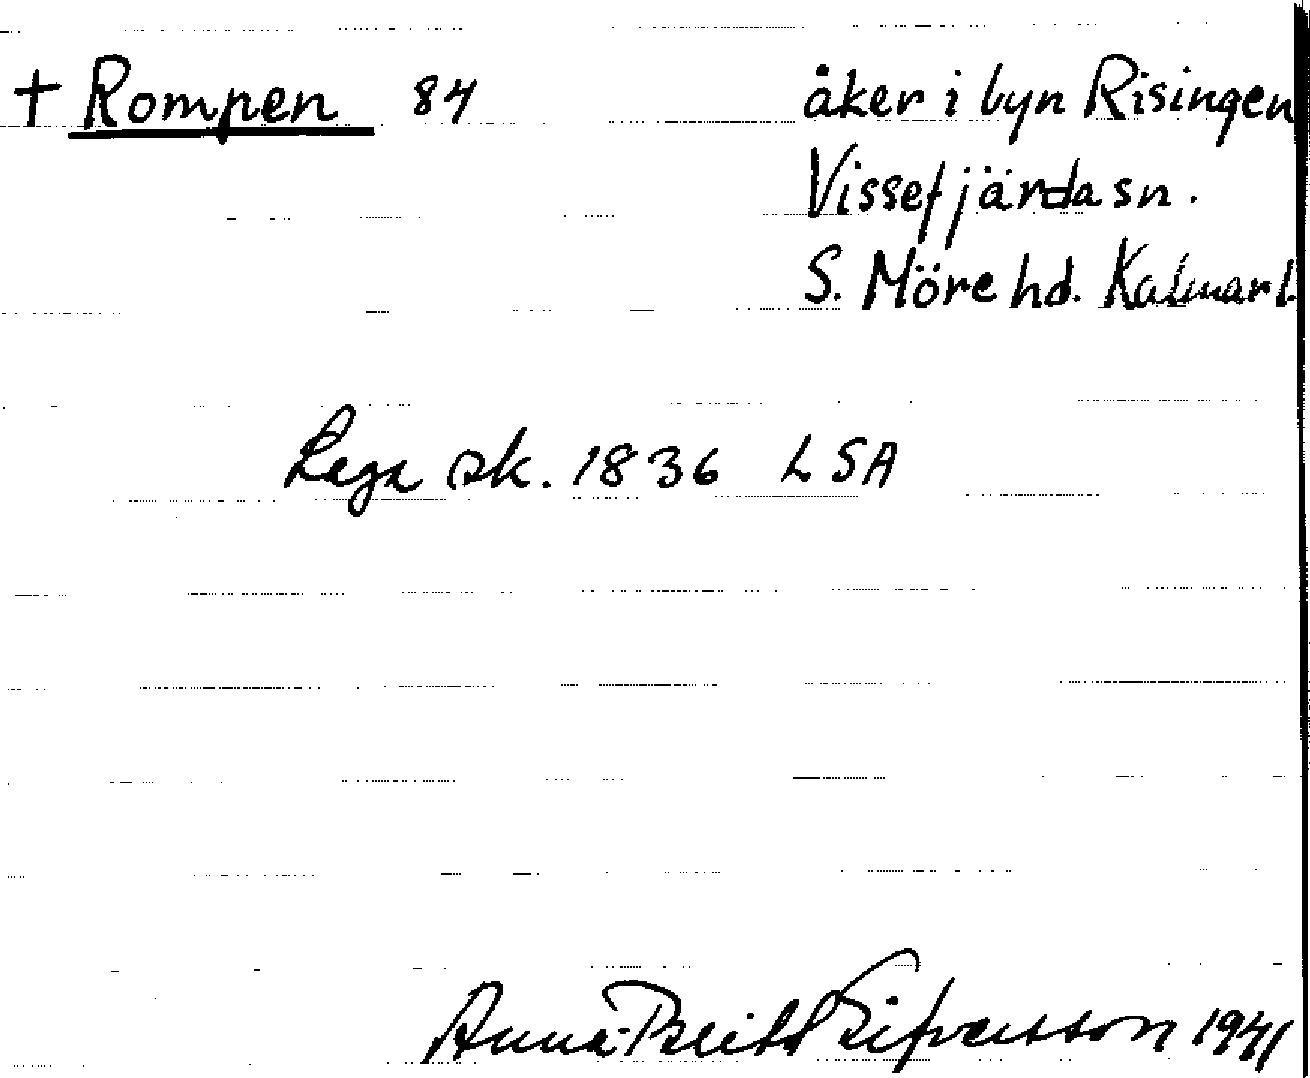 † Rompen 84
åker i byn Risingen
Vissefjärda sn.
S. Möre hd. Kalmar l.
Laga sk. 1836 LSA
Anna-Britt Sifvertsson 1941